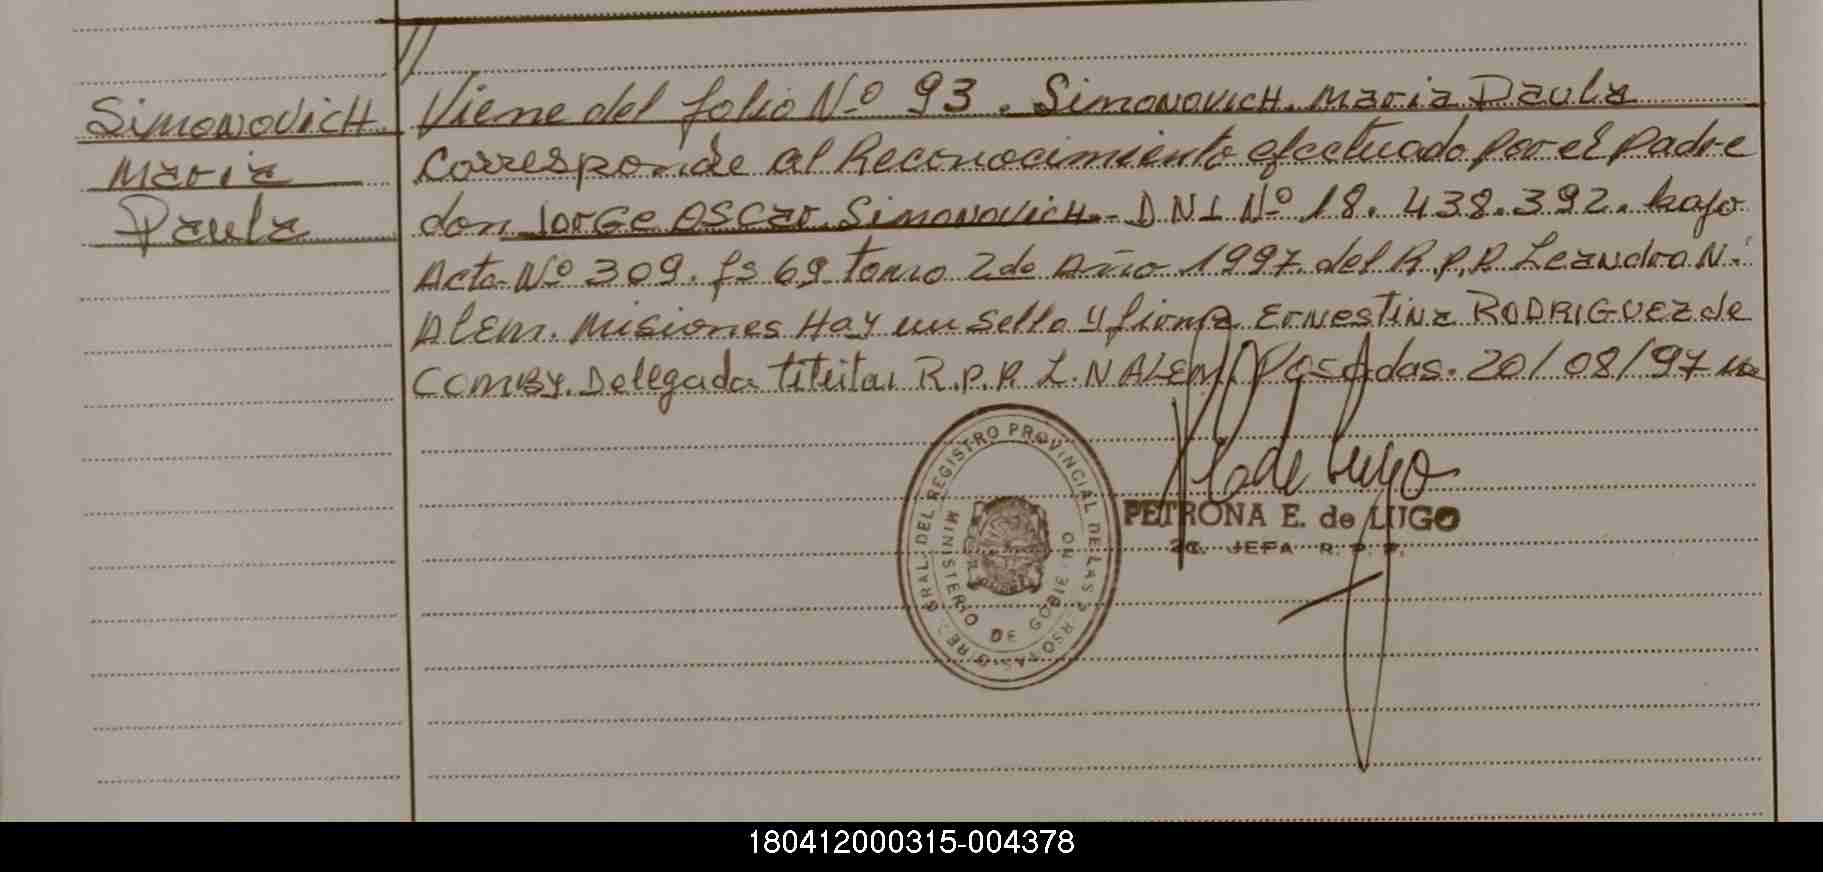 Simonovich
Maria
Paula
Viene del folio Nº 93. Simonovich. Maria Paula
Corresponde al Reconocimiento efectuado por el padre
don Jorge Oscar Simonovich.- DNI Nº 18.438.392. bajo
Acta Nº 309. fs 69 tomo 2do Año 1997. del R.P.P. Leandro N.
Alem. Misiones Hay un sello y firma Ernestina RODRIGUEZ de
Comby. Delegada titular R.P.P. L. N ALEM. Posadas. 20/08/97
de Lugo
PETRONA E. de LUGO
JEFA R. P. P.
GRAL. DEL REGISTRO PROVINCIAL DE LAS
MINISTERIO DE GOBIE NO
180412000315-004378